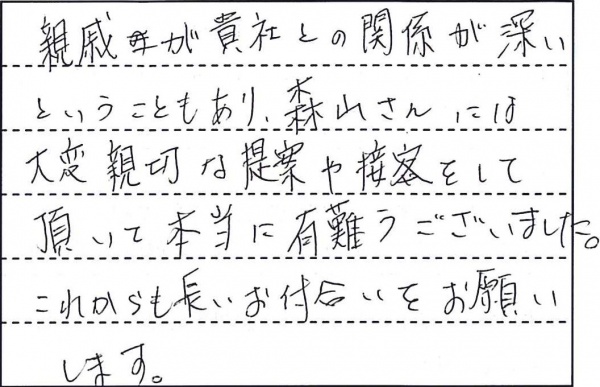 親戚母が貴社との関係が深い
ということもあり、森山さんには
大変親切な提案や接客をして
頂いて本当に有難うございました。
これからも長いお付合いをお願い
します。